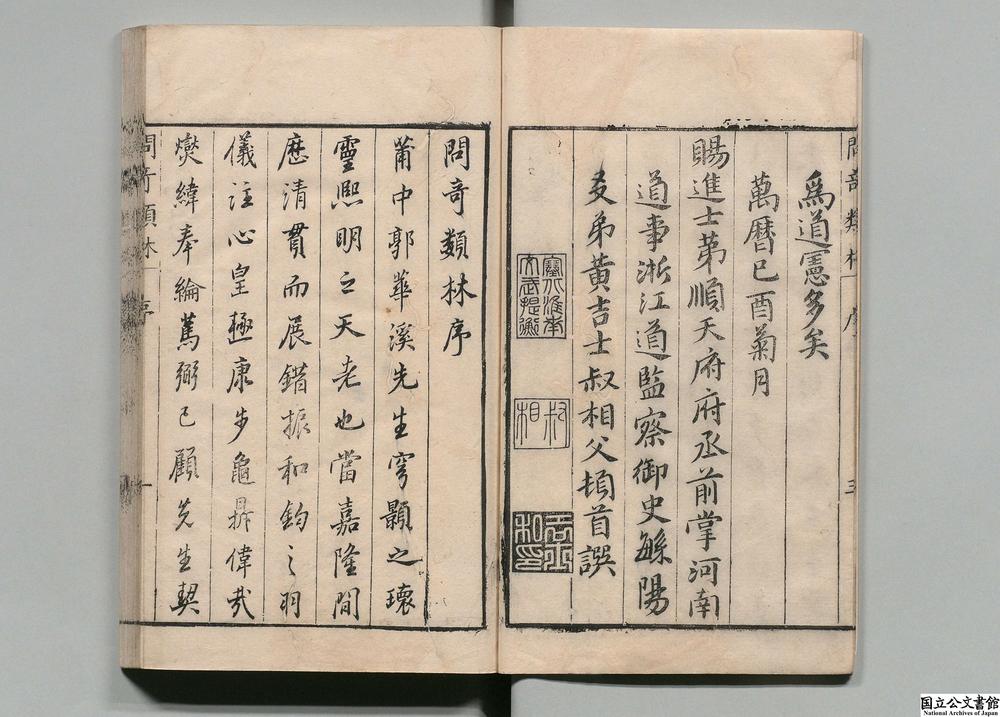 爲道憲多矣
萬曆己酉菊月
賜進士第順天府府丞前掌河南
道事浙江道監察御史鯀陽
友弟黃吉士叔相父頓首譔
叔相
問奇類林序
莆中郭華溪先生穹顥之瓌
靈熙明之天老也當嘉隆間
歷清貫而展錯振和鈞之羽
儀注心皇極康步龜鼎偉哉
爕緯奉綸蔫弼已顧先生契
国立公文書館
National Archives of Japan